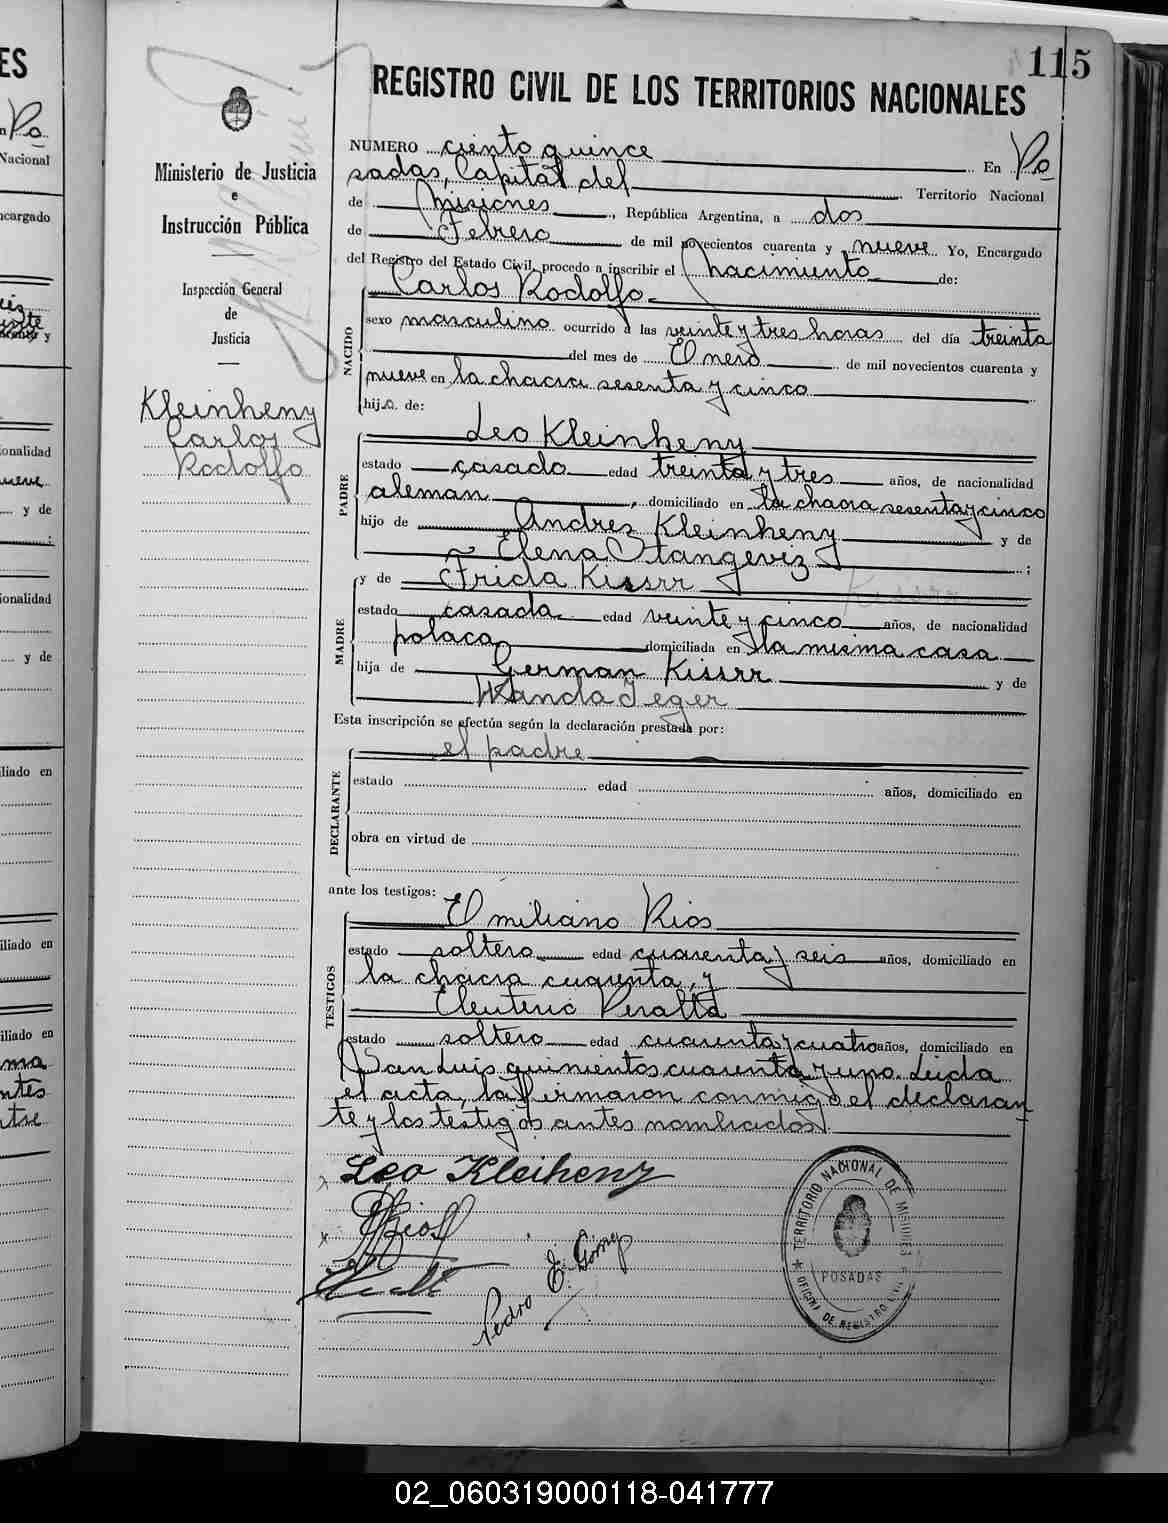 115
REGISTRO CIVIL DE LOS TERRITORIOS NACIONALES
Ministerio de Justicia
e
Instrucción Pública
Inspección General
de
Justicia
Kleinheny
Carlos
Rodolfo
NUMERO ciento quince En Po
sadas, Capital del Territorio Nacional
de Misiones, República Argentina, a dos
de Febrero de mil novecientos cuarenta y nueve Yo, Encargado
del Registro del Estado Civil, procedo a inscribir el nacimiento de:
Carlos Rodolfo
NACIDO
sexo masculino ocurrido a las veinte y tres horas del día treinta
del mes de Enero de mil novecientos cuarenta y
nueve en la chacra sesenta y cinco
hijo de:
Leo Kleinheny
PADRE
estado casado edad treinta y tres años, de nacionalidad
aleman, domiciliado en la chacra sesenta y cinco
hijo de Andres Kleinheny y de
Elena Stangeviz;
y de Frida Kissrr
Kissrr
MADRE
estado casada edad veinte y cinco años, de nacionalidad
polaca domiciliada en la misma casa
hija de German Kissrr y de
Wanda Jeger
Esta inscripción se efectúa según la declaración prestada por:
el padre
DECLARANTE
estado edad años, domiciliado en
obra en virtud de
ante los testigos:
Emiliano Rios
TESTIGOS
estado soltero edad cuarenta y seis años, domiciliado en
la chacra cuarenta, y
Eleuterio Peralta
estado soltero edad cuarenta y cuatro años, domiciliado en
San Luis quinientos cuarenta y uno. Leida
el acta, la firmaron conmigo el declaran
te y los testigos antes nombrados.
Leo Kleihenz
ERios
Pedro E. Gomez
TERRITORIO NACIONAL DE MISIONES
POSADAS
OFICINA DE REGISTRO CIVIL
02_060319000118-041777